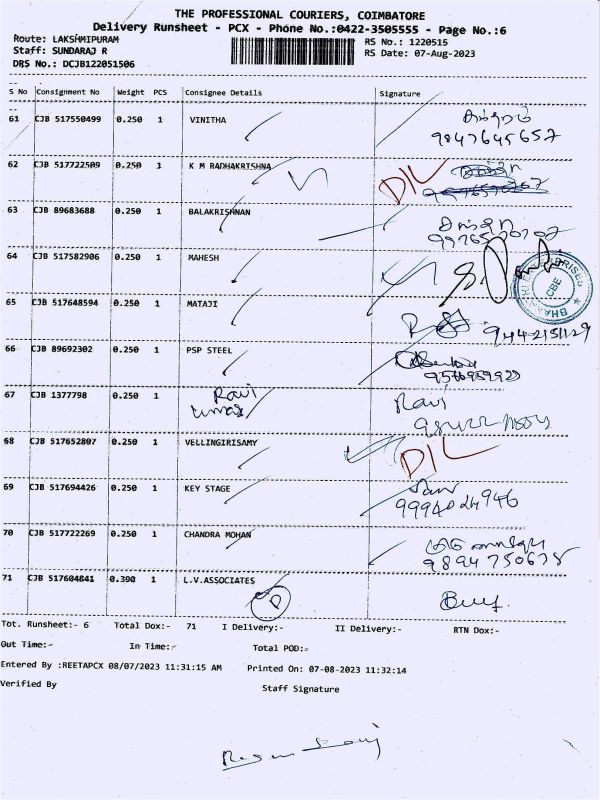 THE PROFESSIONAL COURIERS, COIMBATORE
Delivery Runsheet - PCX - Phone No.:0422-3505555 - Page No.:6
Route: LAKSHMIPURAM
Staff: SUNDARAJ R
DRS No.: DCJB122051506
RS No.: 1220515
RS Date: 07-Aug-2023
S No Consignment No Weight PCS Consignee Details Signature
61 CJB 517550499 0.250 1 VINITHA
9847645657
62 CJB 517722509 0.250 1 K M RADHAKRISHNA D/L
63 CJB 89683688 0.250 1 BALAKRISHNAN
64 CJB 517582906 0.250 1 MAHESH
CBE
65 CJB 517648594 0.250 1 MATAJI
9442151129
66 CJB 89692302 0.250 1 PSP STEEL
67 CJB 1377798 0.250 1 Ravi Kumar Ravi
68 CJB 517652807 0.250 1 VELLINGIRISAMY D/L
69 CJB 517694426 0.250 1 KEY STAGE
9994024946
70 CJB 517722269 0.250 1 CHANDRA MOHAN
9894750678
71 CJB 517604841 0.390 1 L.V.ASSOCIATES
P
Tot. Runsheet:- 6 Total Dox:- 71 I Delivery:- II Delivery:- RTN Dox:-
Out Time:- In Time:- Total POD:-
Entered By :REETAPCX 08/07/2023 11:31:15 AM Printed On: 07-08-2023 11:32:14
Verified By Staff Signature